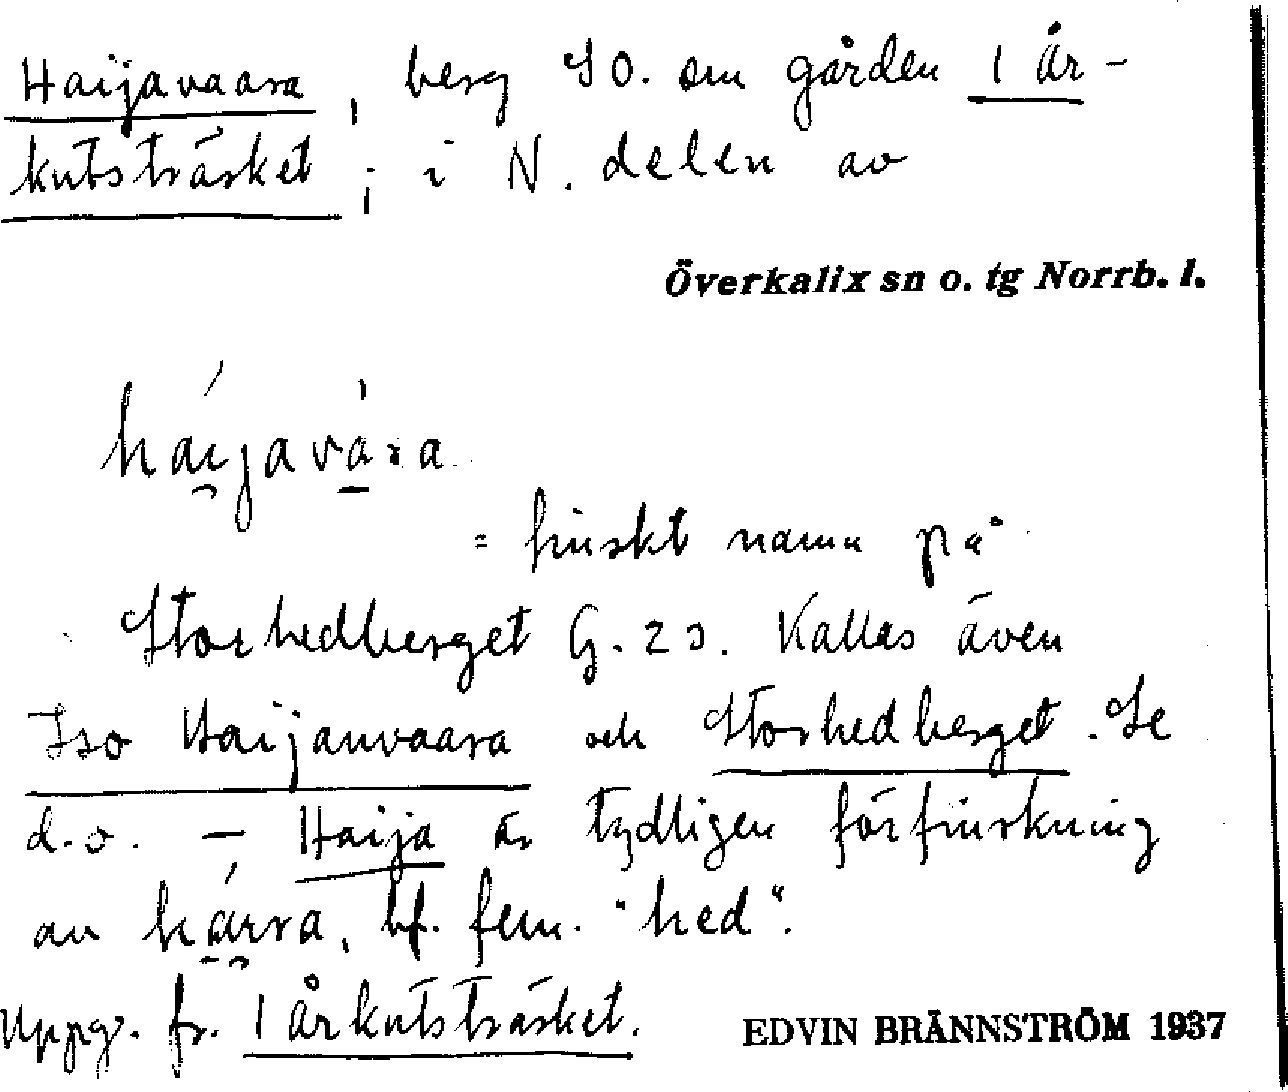 Haijavaara, berg SO. om gården 1 År-
kutsträsket; i N. delen av
Överkalix sn o. tg Norrb. l.
háijavàra
= finskt namn på
Storhedberget G. 23. Kallas även
Iso Haijanvaara och Storhedberget. Se
d. o. — Haija är tydligen förfinskning
av bf. fem. "hed".
Uppg. fr. 1 Årkutsträsket.
EDVIN BRÄNNSTRÖM 1937